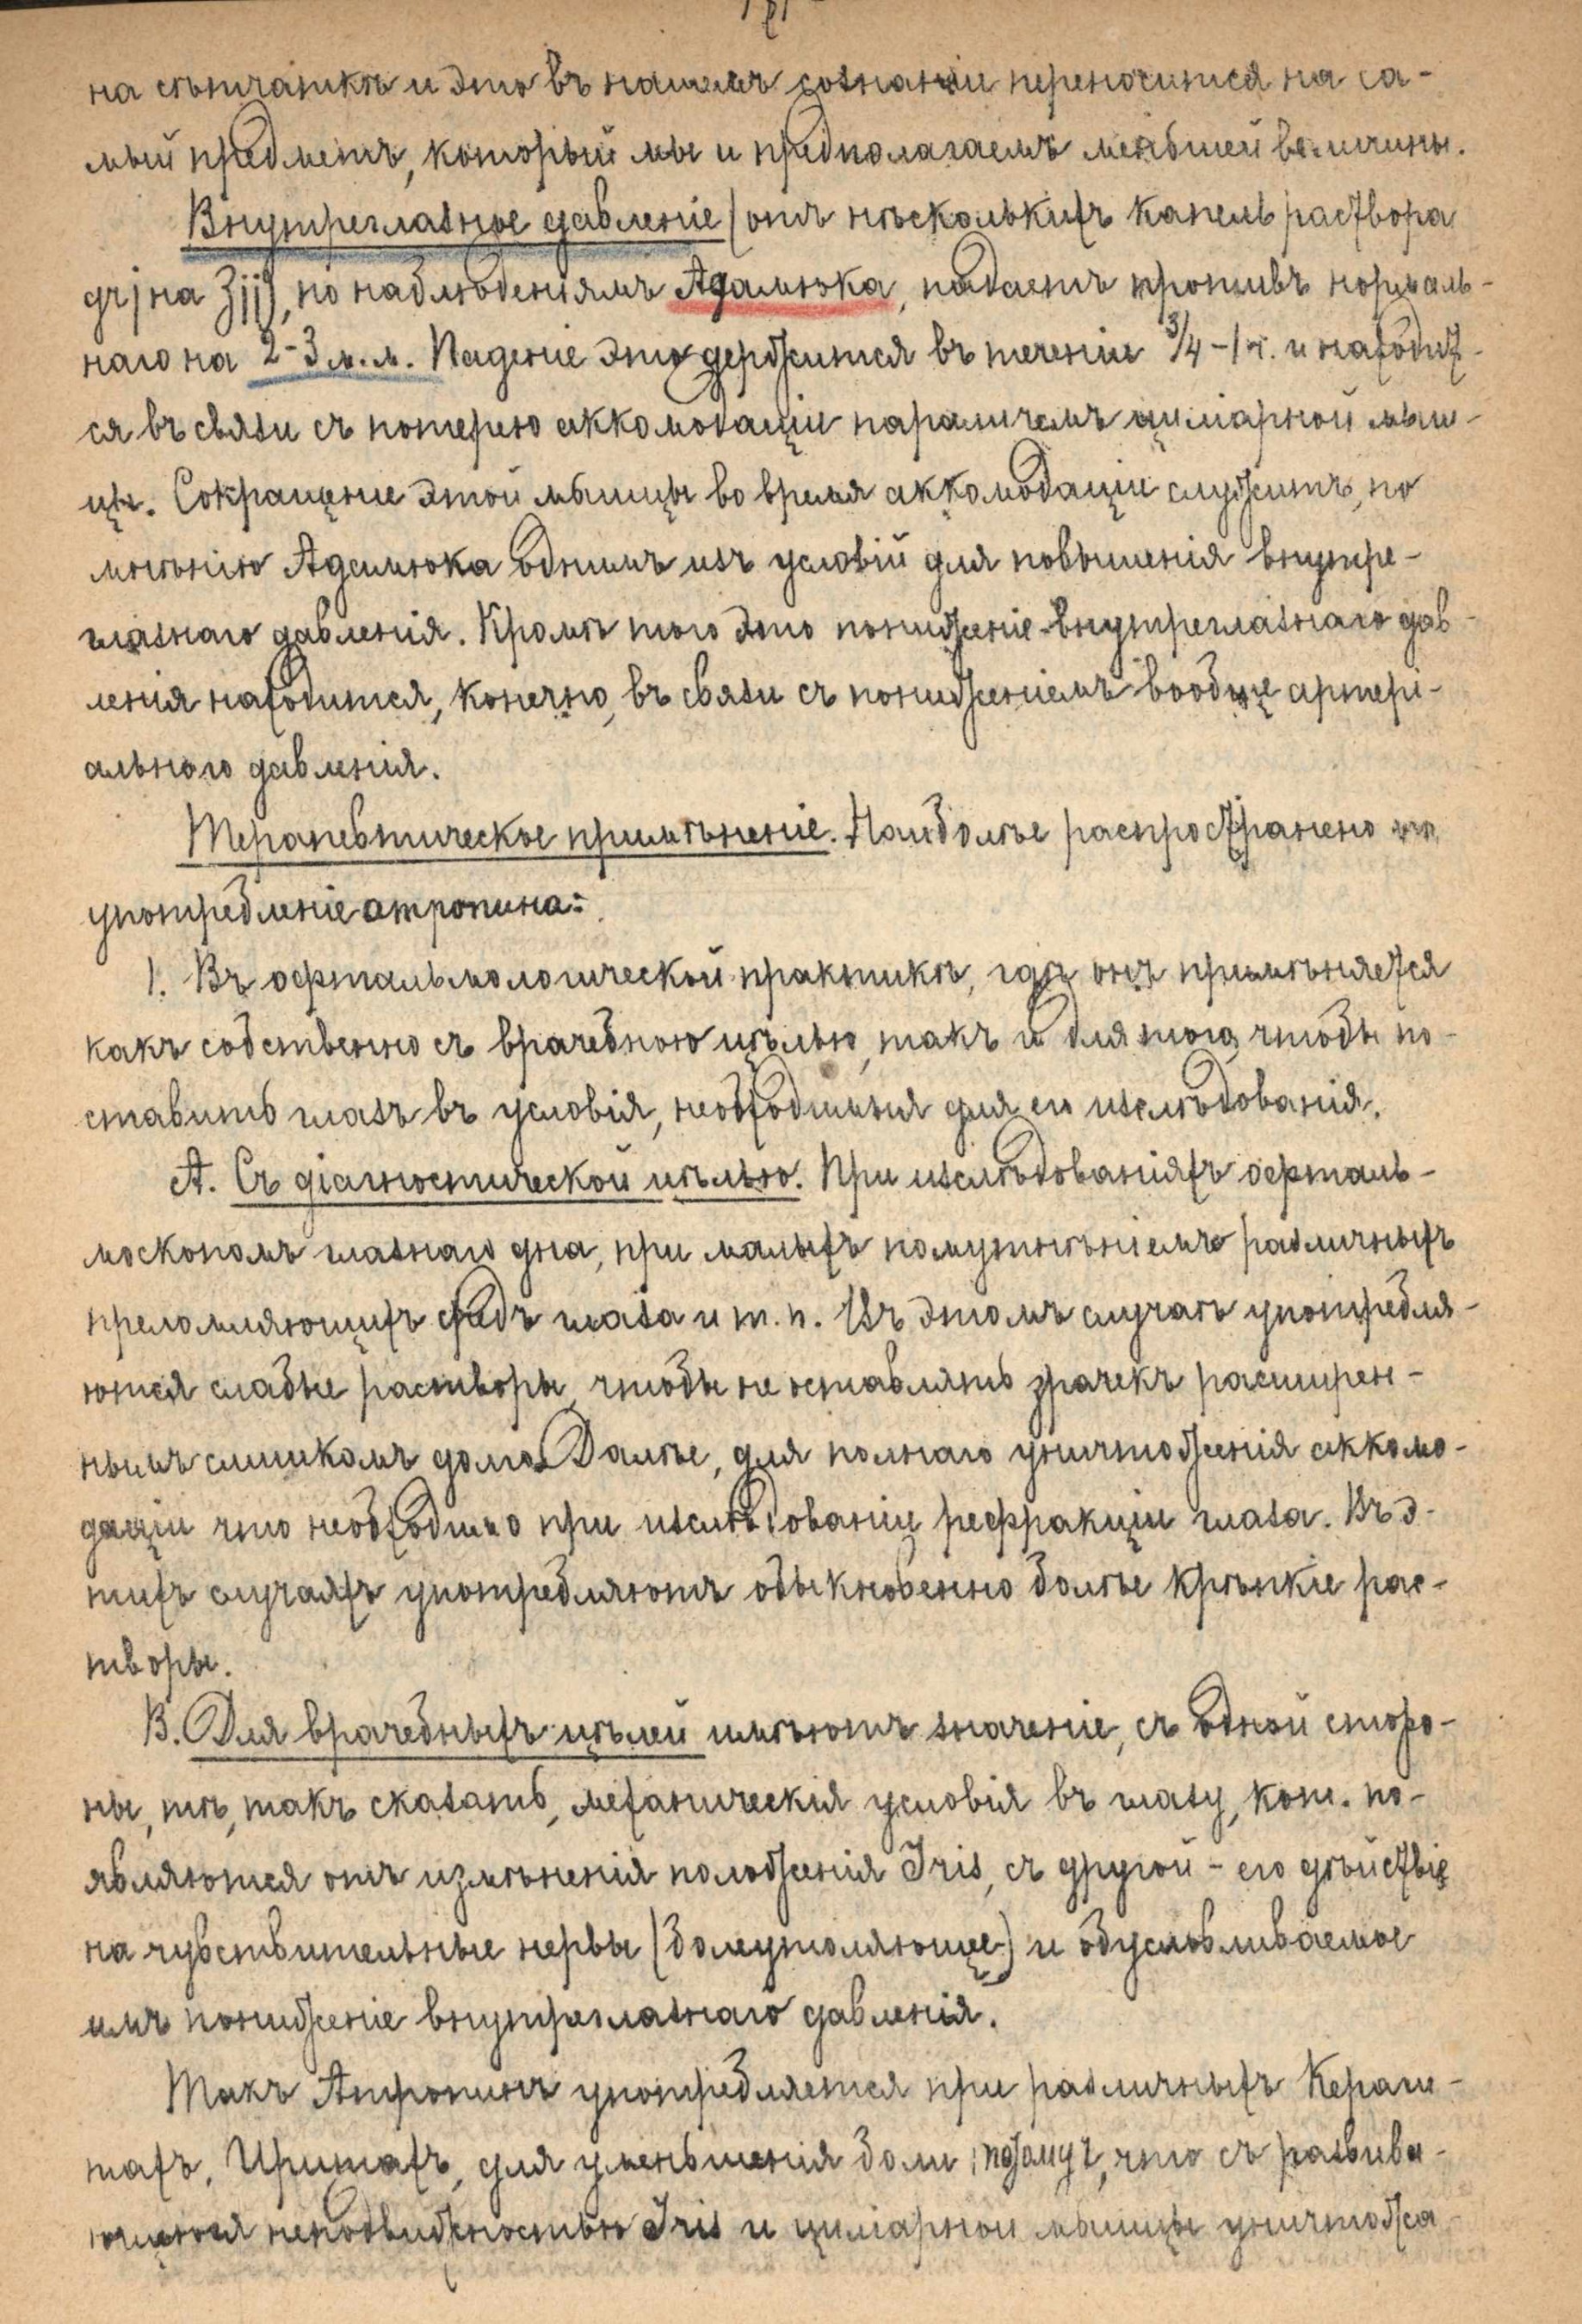 на сѣтчаткѣ и это въ нашемъ сознаніи переносится на са-
мый предметъ, который мы и предполагаемъ меньшей величины.
Внутреглазное давленіе (отъ нѣсколькихъ капель раствора
grj на ʒij), по наблюденіямъ Адамюка, падаетъ противъ нормаль-
наго на 2-3 м.м. Паденіе это держится въ теченіи 3/4-1 ч. и находит-
ся въ связи съ потерею аккомодаціи параличемъ циліарной мыш-
цы. Сокращеніе этой мышцы во время аккомодаціи служитъ, по
мнѣнію Адамюка однимъ изъ условій для повышенія внутре-
глазнаго давленія. Кромѣ того это пониженіе внутреглазнаго дав-
ленія находится, конечно, въ связи съ пониженіемъ вообще артері-
альнаго давленія.
Терапевтическое примѣненіе. Наиболѣе распространено
употребленіе атропина:
1. Въ офтальмологической практикѣ, гдѣ онъ примѣняется
какъ собственно съ врачебною цѣлью, такъ и для того, чтобы по-
ставить глазъ въ условія, необходимыя для его изслѣдованія.
А. Съ діагностической цѣлью. При изслѣдованіяхъ офталь-
москопомъ глазнаго дна, при малыхъ помутнѣніемъ различныхъ
преломляющихъ средъ глаза и т. п. Въ этомъ случаѣ употребля-
ются слабые растворы, чтобы не оставлять зрачекъ расширен-
нымъ слишкомъ долго. Далѣе, для полнаго уничтоженія аккомо-
даціи что необходимо при изслѣдованіи рефракціи глаза. Въ э-
тихъ случаяхъ употребляютъ обыкновенно болѣе крѣпкіе рас-
творы.
В. Для врачебныхъ цѣлей имѣютъ значеніе, съ одной сторо-
ны, тѣ, такъ сказать, механическія условія въ глазу, кот. по-
являются отъ измѣненія положенія Iris, съ другой - его дѣйствіе
на чувствительные нервы (болеутоляющее) и обусловливаемое
имъ пониженіе внутреглазнаго давленія.
Такъ Атропинъ употребляется при различныхъ Керати-
тахъ, Иритахъ, для уменьшенія боли, потому, что съ развива-
ющеюся неподвижностью Iris и циліарной мышцы уничтожа-